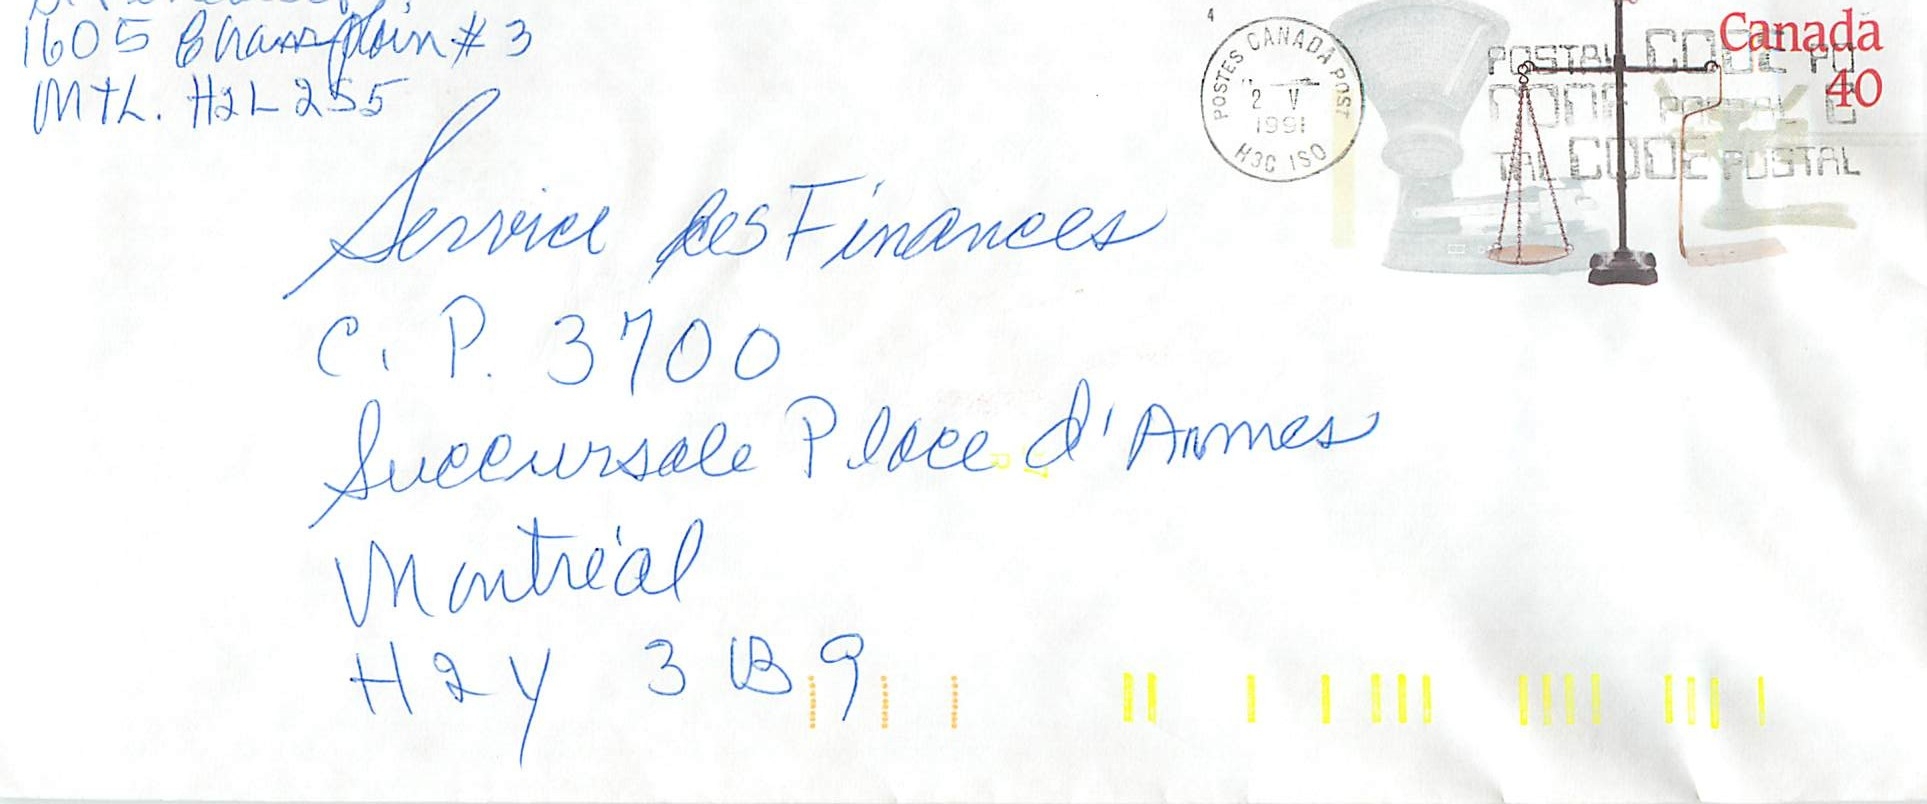 1605 Champlain # 3
Mtl. H2L 2S5
4
POSTES CANADA POST
2 V
1991
H3C 1S0
Canada
40
POSTAL CODE PO
CODE POSTAL C
TAL CODE POSTAL
Service des Finances
C. P. 3700
Succursale Place d'Armes
Montréal
H2Y 3B9